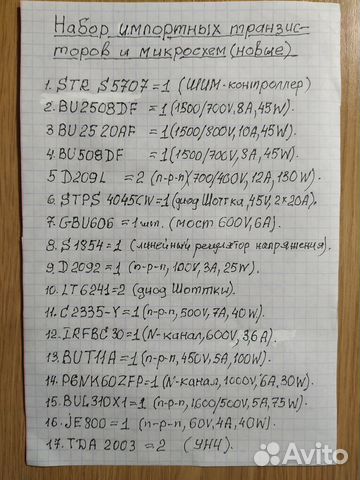 Набор импортных транзис-
торов и микросхем (новые)
1. STR S5707 = 1 (ШИМ-контроллер)
2. BU2508DF = 1 (1500/700V, 8A, 45W).
3 BU2520AF = 1 (1500/800V, 10A, 45W).
4. BU508DF = 1 (1500/700V, 8A, 45W).
5 D209L = 2 (n-p-n)(700/400V, 12A, 130W).
6. STPS 4045CW = 1 (диод Шоттка, 45V, 2×20A).
7. GBU606 = 1 шт. (мост 600V, 6A).
8. S1854 = 1 (линейный регулятор напряжения).
9. D2092 = 1 (n-p-n, 100V, 3A, 25W).
10. LT6241 = 2 (диод Шоттки).
11. C2335-Y = 1 (n-p-n, 500V, 7A, 40W).
12. IRFBC30 = 1 (N-канал, 600V, 3,6A).
13. BUT11A = 1 (n-p-n, 450V, 5A, 100W).
14. P6NK60ZFP = 1 (N-канал, 1000V, 6A, 30W).
15. BUL310X1 = 1 (n-p-n, 1600/500V, 5A, 75W).
16. JE800 = 1 (n-p-n, 60V, 4A, 40W).
17. TDA 2003 = 2 (УНЧ).
Avito